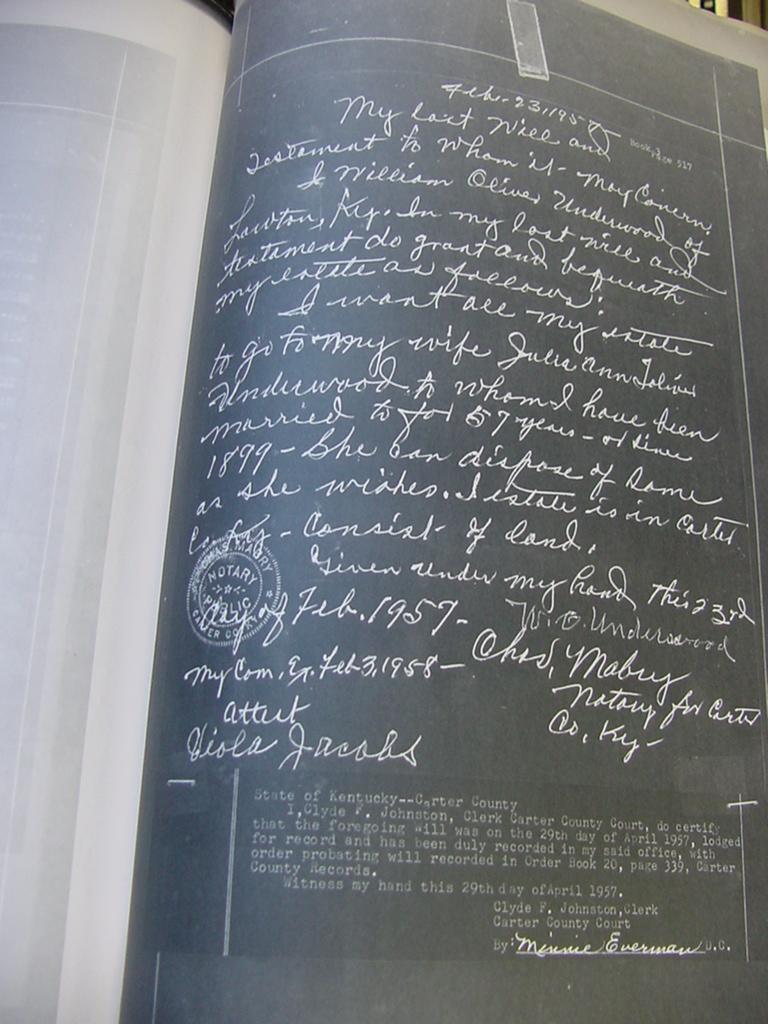 Feb. 23, 1957
Book 3
Page 517
My last Will and
Testament to Whom it - May Concern,
I William Oliver Underwood of
Lawton, Ky. In my last will and
testament do grant and bequeath
my estate as follows:
I want all my estate
to go to my wife Julia Ann Toliver
Underwood, to whom I have been
married to for 57 years - or since
1899 - She can dispose of Same
as she wishes. I estate is in Carter
Co. Ky - Consist - of land.
Given under my hand this 23rd
day of Feb. 1957 -
W. O. Underwood
CHAS MABRY
NOTARY
PUBLIC
CARTER CO. KY.
My Com. Ex. Feb 3, 1958 -
Chas. Mabry
Notary for Carter
Co, Ky -
attest
Viola Jacobs
State of Kentucky--Carter County
I, Clyde F. Johnston, Clerk Carter County Court, do certify
that the foregoing will was on the 29th day of April 1957, lodged
for record and has been duly recorded in my said office, with
order probating will recorded in Order Book 20, page 339, Carter
County Records.
Witness my hand this 29th day of April 1957.
Clyde F. Johnston, Clerk
Carter County Court
By: Minnie Everman D.C.